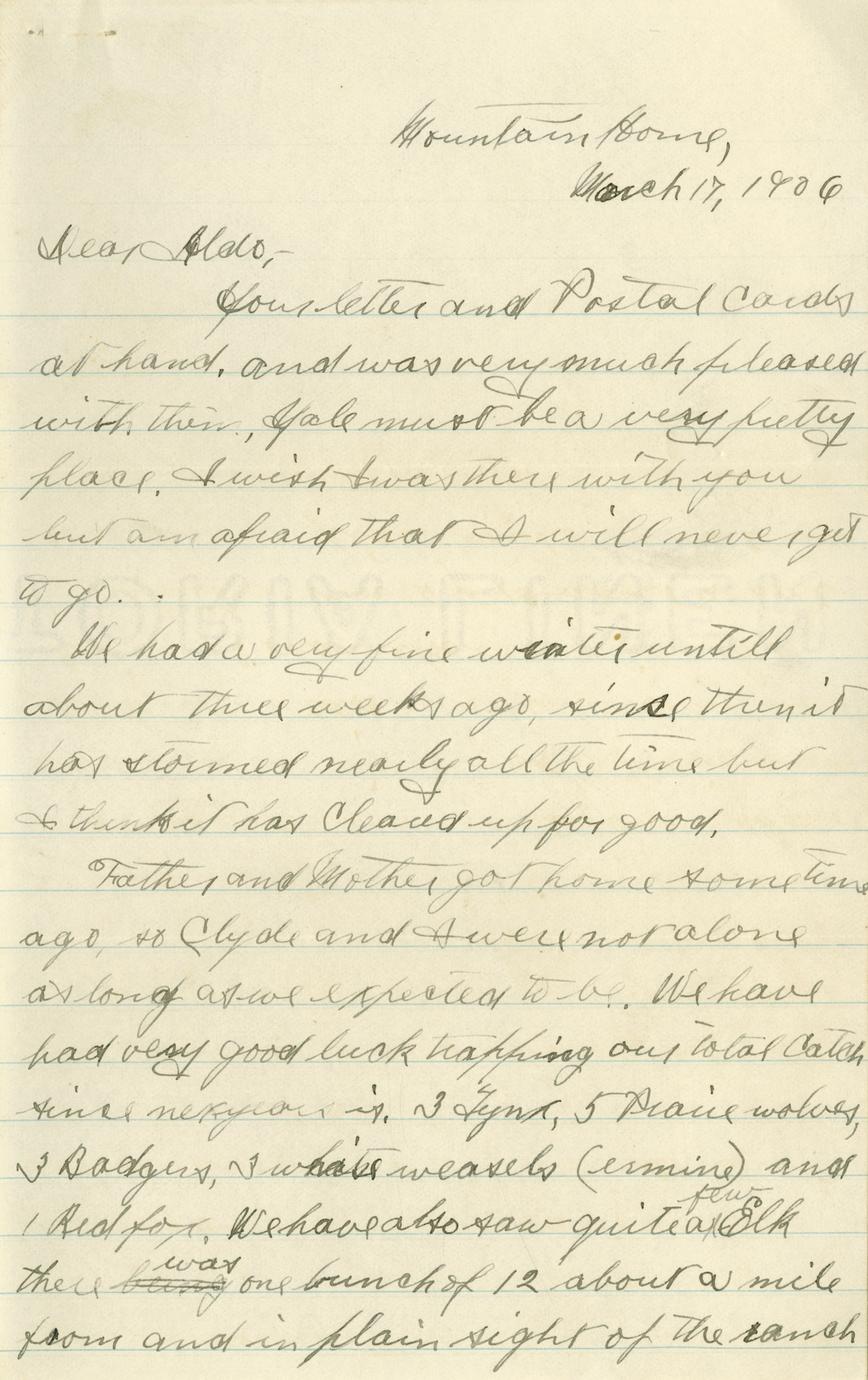 Mountain Home,
March 17, 1906
Dear Aldo,-
Your letter and Postal Cards
at hand, and was very much pleased
with them, Yale must be a very pretty
place. I wish I was there with you
but am afraid that I will never get
to go.
We had a very fine winter untill
about three weeks ago, since then it
has stormed nearly all the time but
I think it has Cleard up for good.
Father and Mother got home some time
ago, so Clyde and I were not alone
as long as we expected to be. We have
had very good luck trapping our total Catch
since is. 3 Lynx, 5 Praire wolves,
3 Badgers, 3 white weasels (ermine) and
1 Red fox. We have also saw quite a few Elk
there being was one bunch of 12 about a mile
from and in plain sight of the ranch